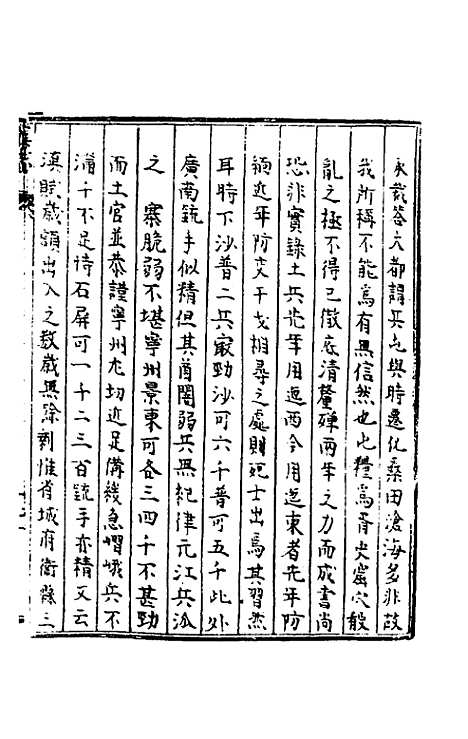 永裁荅大都謂兵屯與時遷化桑田滄海多非故
我所稱不能為有無信然也屯糧為胥史窟穴殽
亂之極不得已徹底清釐殫兩年之力而成書尚
恐非實錄土兵先年用迤西今用迤東者先年防
緬近年防交干戈相尋之處則死士出焉其習然
耳時下沙普二兵最勁沙可六千普可五千此外
廣南銃手似精但其酋闇弱兵無紀律元江兵派
之 寨脆弱不堪寧州景東可各三四千不甚勁
而土官並恭謹寧州尤切近足備緩急嶍峨兵不
滿千不足恃石屏可一千二三百銃手亦精又云
滇賦歲額出入之數歲無餘剩惟省城府衛縣三